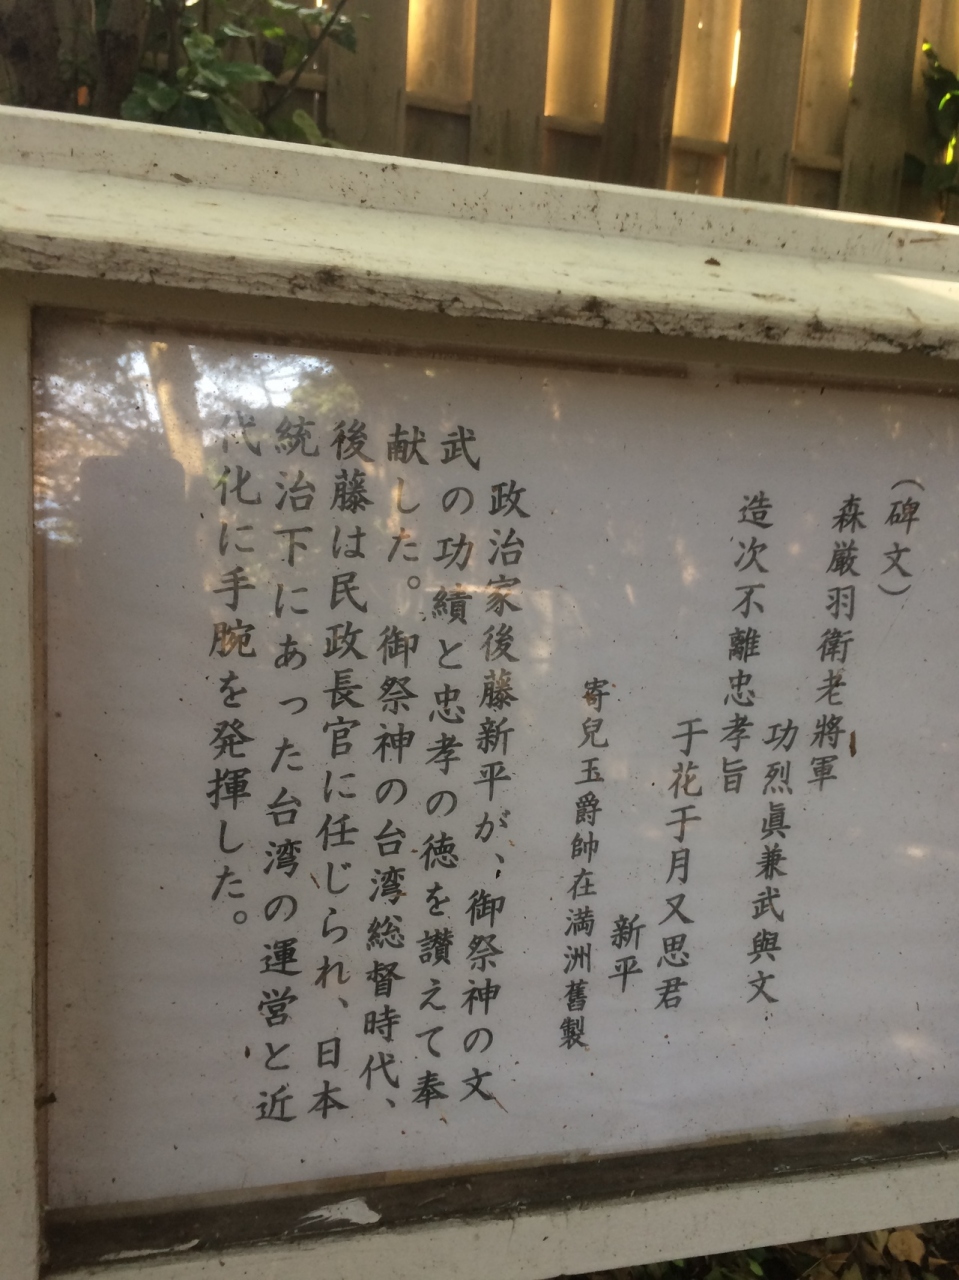 （碑文）
森厳羽衛老將軍
功烈眞兼武與文
造次不離忠孝旨
于花于月又思君
新平
寄兒玉爵帥在満洲舊製
政治家後藤新平が、御祭神の文
武の功績と忠孝の徳を讃えて奉
献した。御祭神の台湾総督時代、
後藤は民政長官に任じられ、日本
統治下にあった台湾の運営と近
代化に手腕を発揮した。